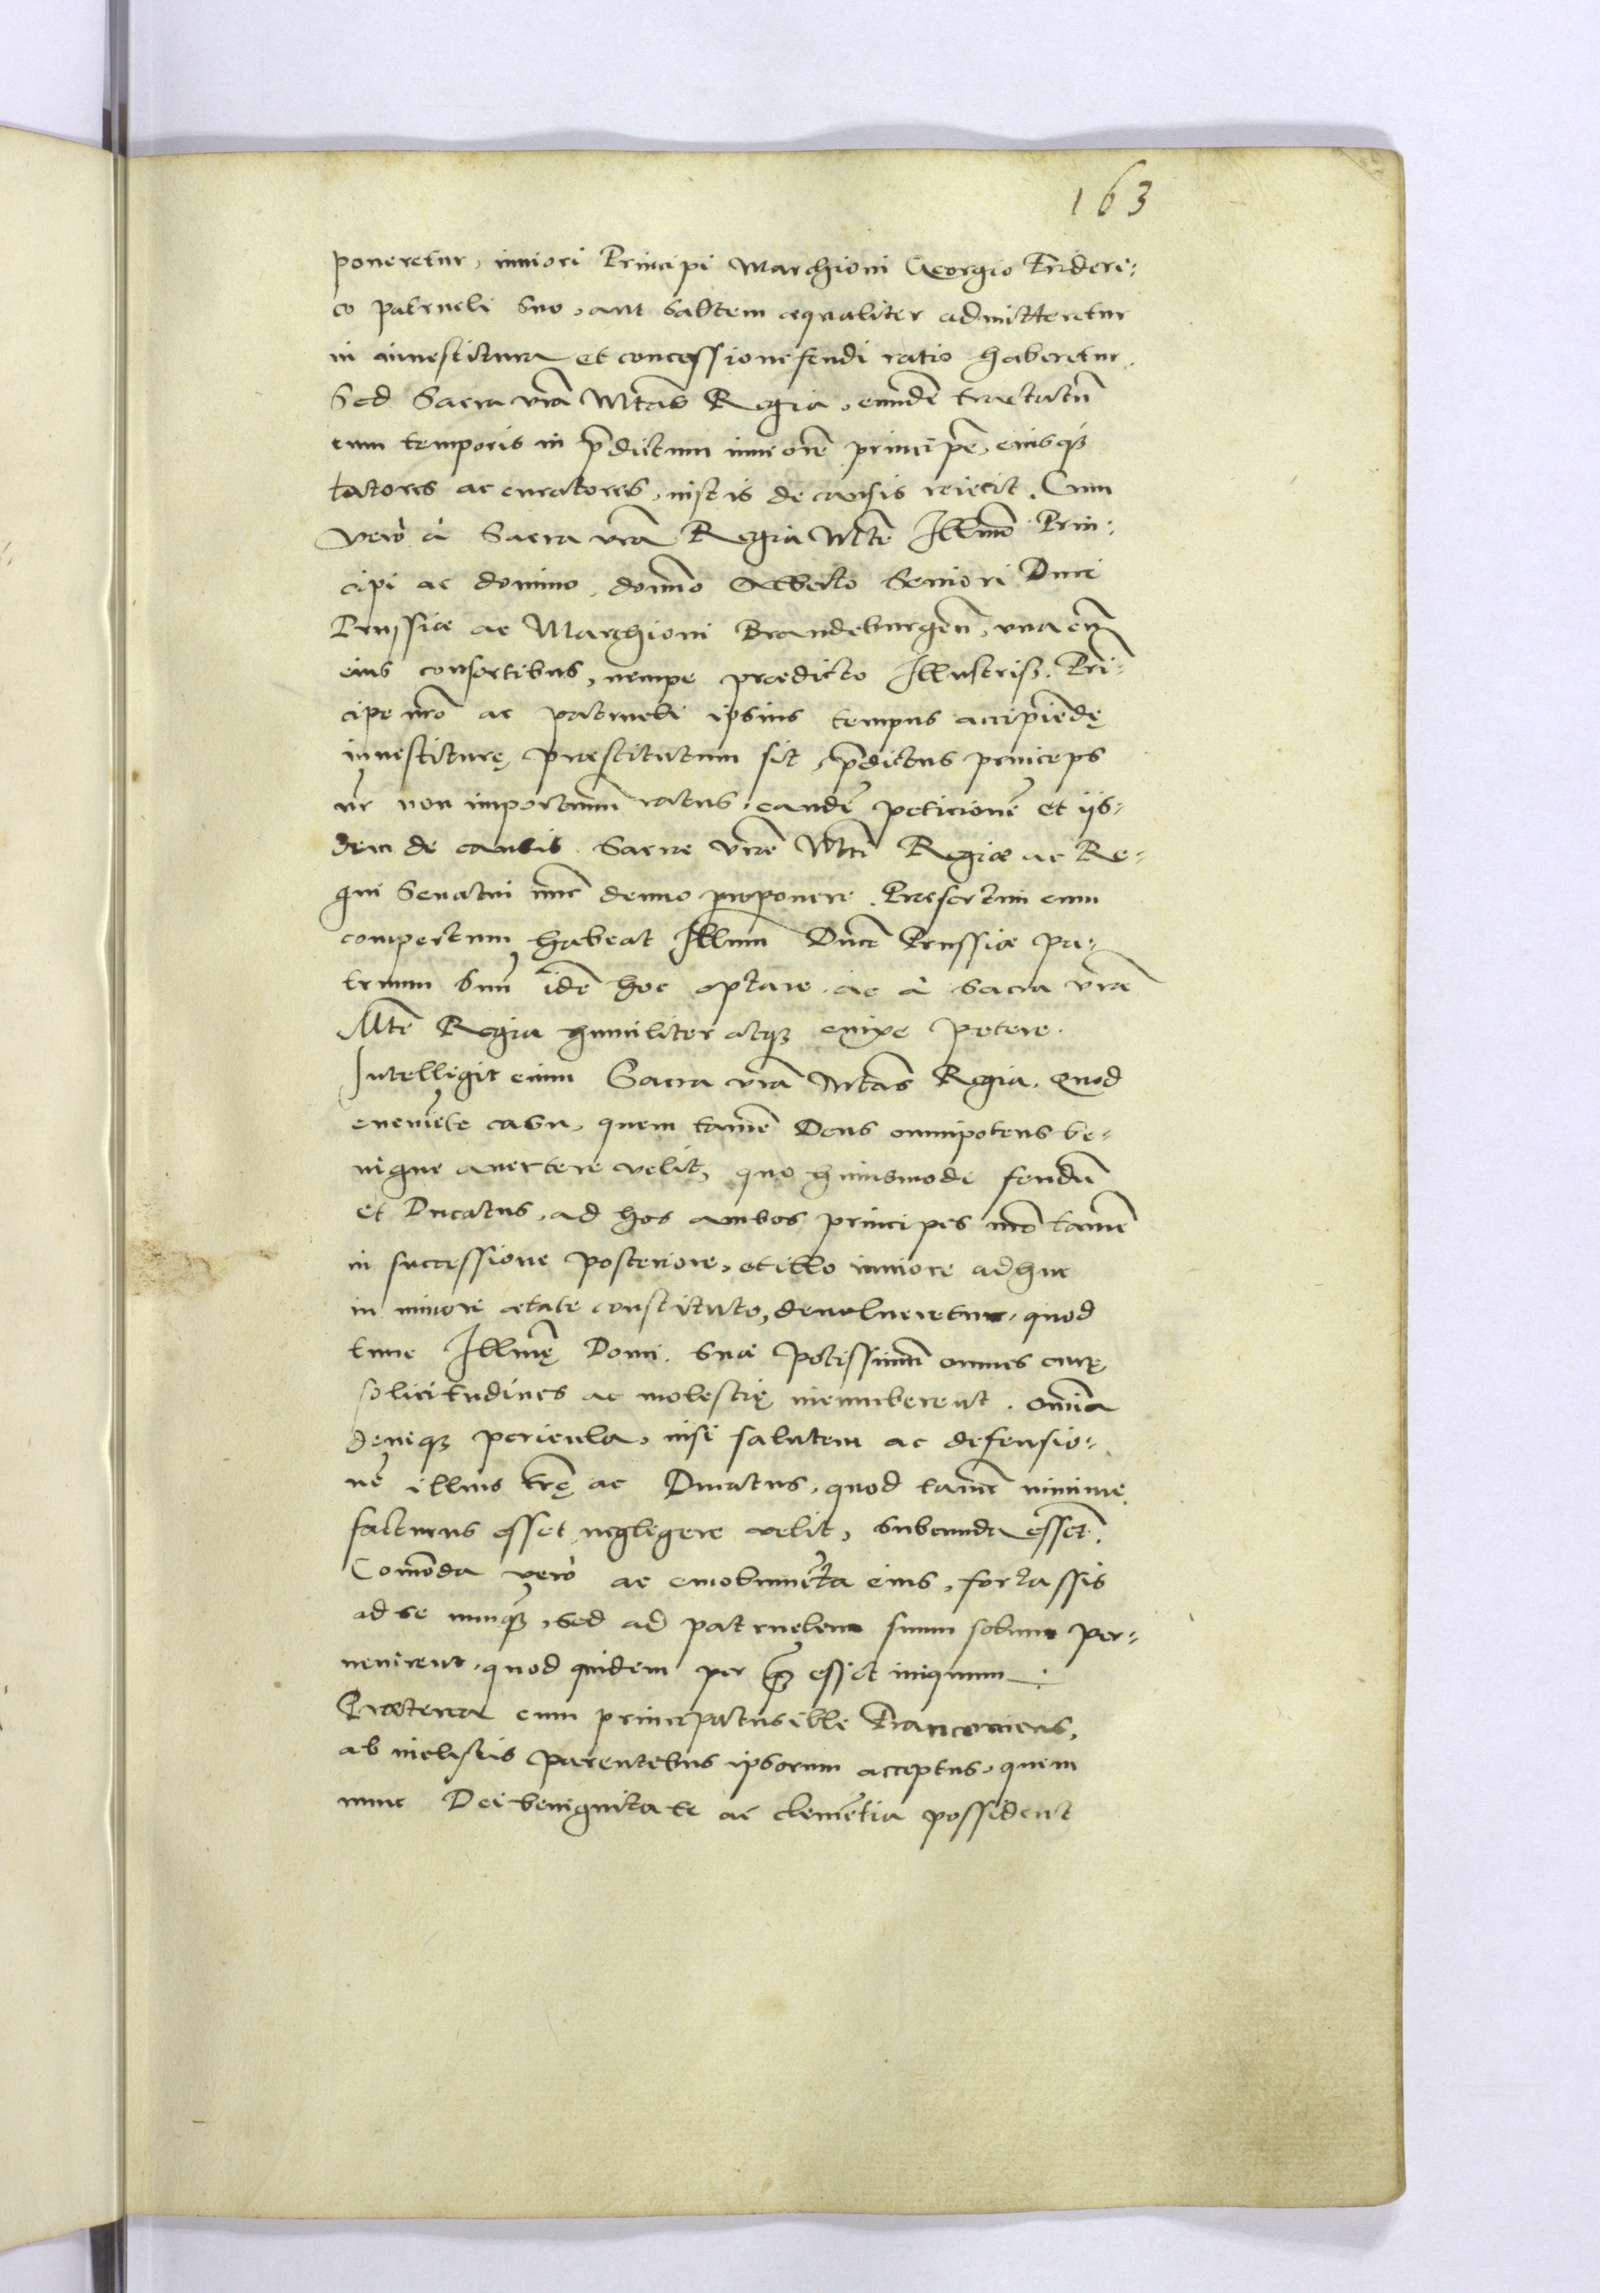 163
poneretur, iuniori Principi Marchioni Georgio Frideri-
co patrueli suo, aut saltem aequaliter admitteretur
in inuestitura et concessione feudi ratio haberetur.
Sed Sacra vrã Mtas Regia, eundẽ tractatũ
eum temporis in p̃dictum iuniorẽ principẽ, eiusq3
tutores ac curatores, iustis de causis reiecit. Cum
verò à Sacra vrã Regia Mte Illmo Prin-
cipi ac domino, domino Alberto Seniori Duci
Prussiae ac Marchioni Brandeburgeñ, vna cũ
eius consortibus, nempe praedicto Illustriss. Prĩ-
cipe nro ac patrueli ipsius tempus accipiẽdę
inuestiturę praestitutum sit, p̃dictus princeps
nr non importunũ ratus, eandẽ peticionẽ et iis-
dem de causis Sacrae Vrae Mti Regiae ac Re-
gni Senatui nũc denuo proponere. Praesertim cum
compertum habeat Illum Ducẽ Prussiae pa-
truum suũ idẽ hoc optare, ac à Sacra vrã
Mte Regia humiliter atq3 enixe petere.
Intelligit enim Sacra vrã Mtas Regia, Quod
eueniẽte casu, quem tamẽ Deus omnipotens be-
nigne auertere velit, quo huiusmodi feudũ
et Ducatus, ad hos ambos principes nro tamẽ
in successione posteriore, et illo iuniore adhuc
in minori aetate constituto, deuolueretur, quod
tunc Illmę Domi. Suae potissimũ omnes curę,
solicitudines ac molestię incumberent. omĩa
deniq3 pericula, nisi salutem ac defensio-
nẽ illius trę ac Ducatus, quod tamẽ minime
facturus esset, negligere velit, subeunda essẽt.
Comõda verò ac emolumẽta eius, fortassis
ad se nunq3, sed ad patruelem suum solum per-
uenirent, quod quidem per q3 esset iniquum.
Praeterea cum principatus ille Franconiens,
ab inclitis parentibus ipsorum acceptus, quem
nunc Dei benignitate ac clemẽtia possident